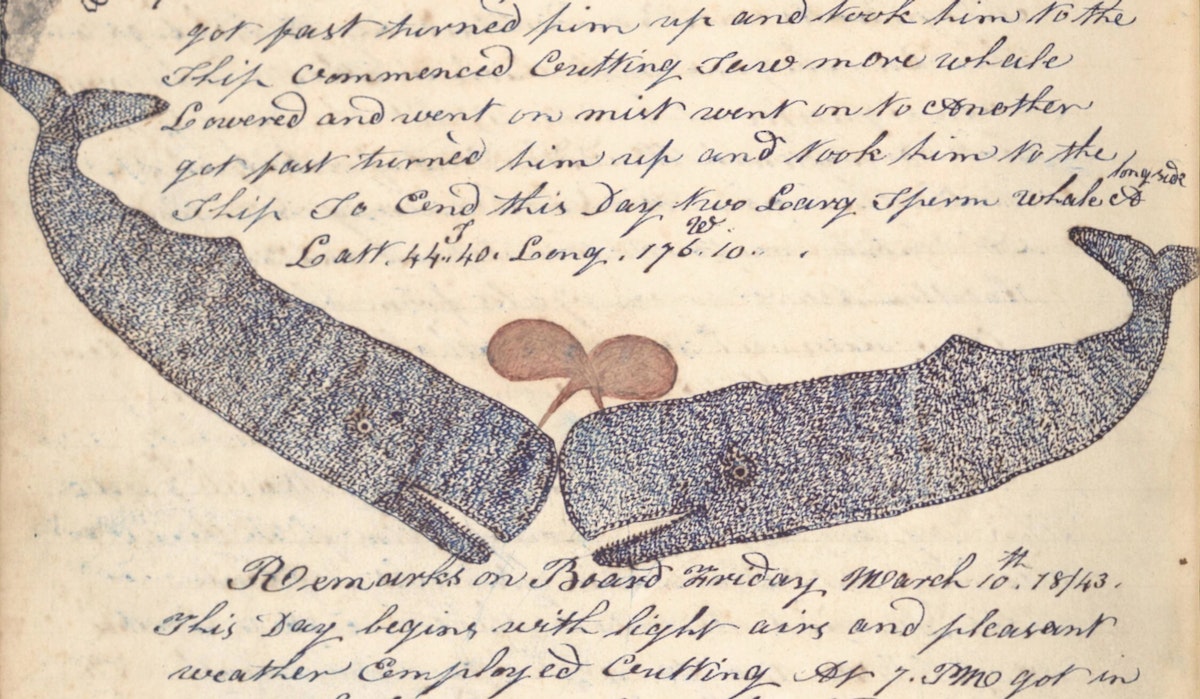 got fast turned him up and took him to the
Ship Commenced Cutting Saw more whale
Lowered and went on mist went on to Another
got fast turned him up and took him to the
Ship So Ends this Day two Larg Sperm whale long side
Latt. 44..40. S Long. 176.10. W
Remarks on Board Friday March 10th. 1843.
This Day begins with light airs and pleasant
weather Employed Cutting At 7. PM got in